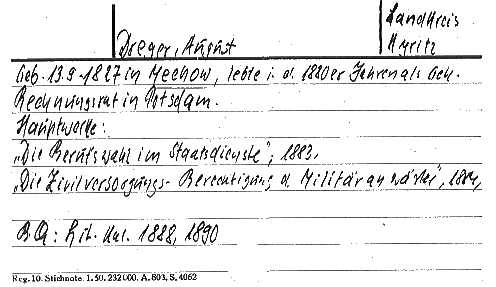 Landkreis
Dreger, August Pyritz
Geb. 13.9.1827 in Mechow, lebte i. d. 1880er Jahren als Geh.
Rechnungsrat in Potsdam.
Hauptwerke:
„Die Berufswahl im Staatsdienste", 1883.
„Die Zivilversorgungs- Berechtigung d. Militäranwärter", 1884,
B.Q: Lit. Kal. 1888, 1890
Reg. 10. Stichnote. 1. 50. 232 000. A. 803. S. 4062